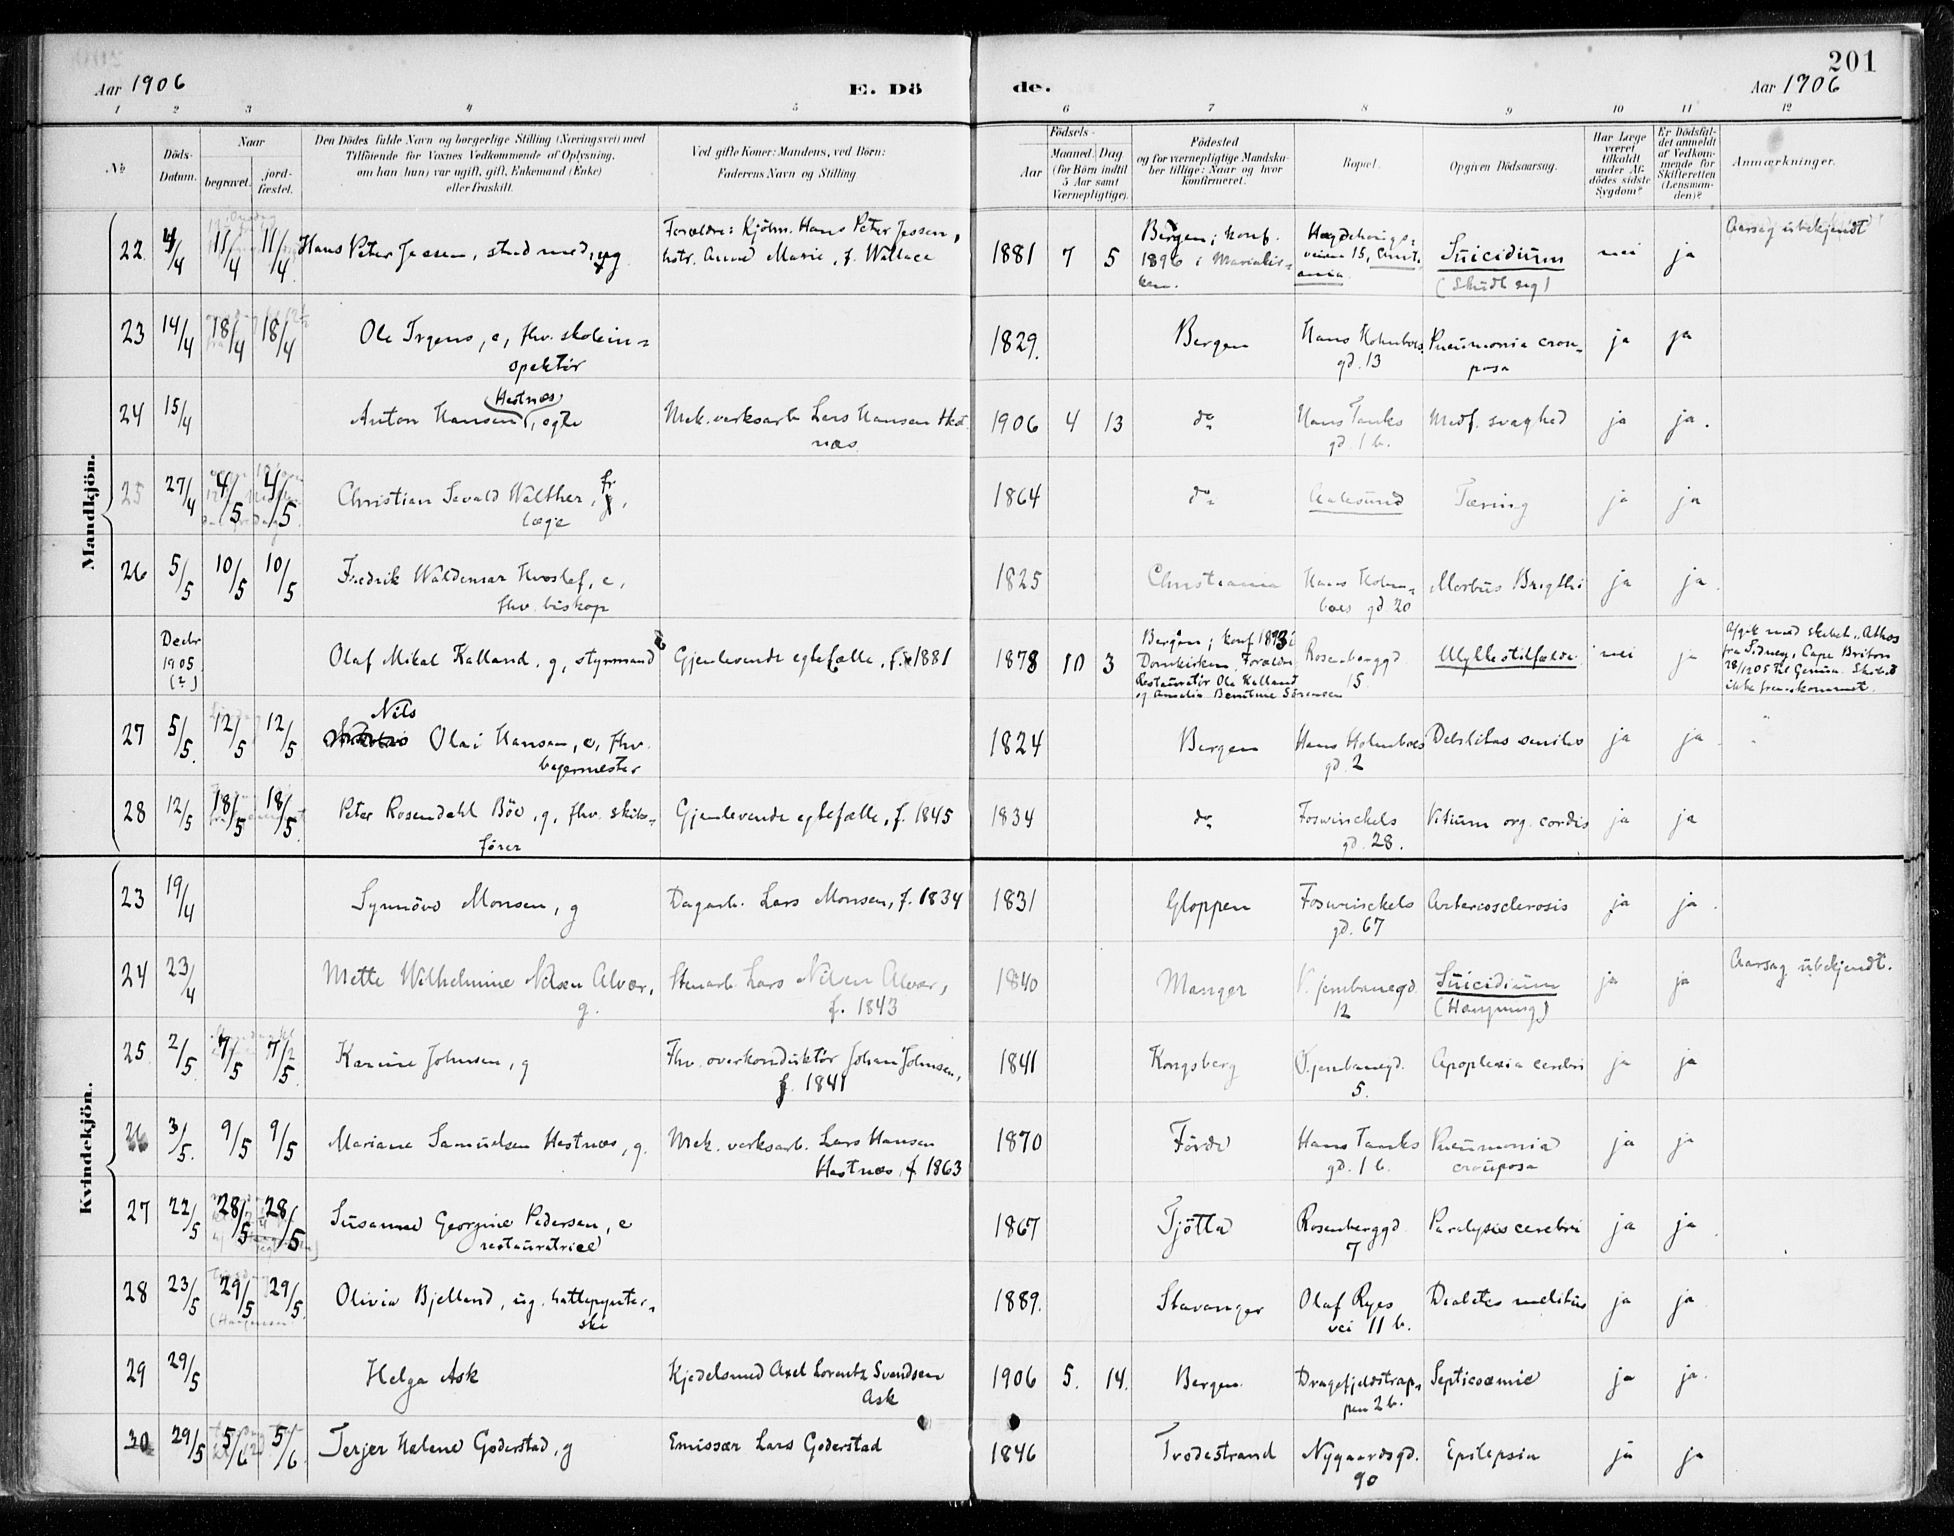 201
Aar 1906 E. Dö de. Aar 1906
1 2 3 4 5 6 7 8 9 10 11 12
No. Döds-Datum. Naar begravet. jordfæstet. Den Dödes fulde Navn og borgerlige Stilling (Næringsvei) med Tilföiende for Voxnes Vedkommende af Oplysning, om han (hun) var ugift, gift, Enkemand (Enke) eller fraskilt. Ved gifte Koner: Mandens, ved Börn: Faderens Navn og Stilling Födsels- Aar Maaned. Dag (for Börn indtil 5 Aar samt Værnepligtige). Födested og for værnepligtige Mandskaber tillige: Naar og hvor konfirmeret. Bopæl. Opgiven Dödsaarsag. Har Læge været tilkaldt under Afdödes sidste Sygdom? Er Dödsfaldet anmeldt af Vedkommende for Skifteretten (Lensmanden)? Anmærkninger.
Mandkjön.
22. 4/4 11/4 11/4 Hans Peter Jessen, stud med, ug. Forældre: Kjöbm. Hans Peter Jessen, hstr. Anne Marie, f. Wallace 1881 7 5 Bergen; konf. 1896 i Mariakirken. 15, Christiania Suicidium (Skudt seg) nei ja Aarsag ubekjendt
23 14/4 18/4 18/4 Ole Irgens, e, fhv. skoleinspektör 1829. Bergen Hans Holmboes gd. 13 Pneumonia crouposa ja ja
24 15/4 Anton Hansen Hestnæs, egte Mek. verksarb. Lars Hansen Hestnæs 1906 4 13 do Hans Tanks gd. 1 b. Medf. svaghed ja ja.
25 27/4 4/5 4/5 Christian Sevald Walther, fr, læge 1864 do Aalesund Tæring ja ja
26 5/5 10/5 10/5 Fredrik Waldemar Hvoslef, e, fhv. biskop 1825 Christiania Hans Holmboes gd. 20 Morbus Brigthi ja ja.
Decbr 1905 (?) Olaf Mikal Kalland, g, styrmand Gjenlevende egtefælle, f. 1881 1878 10 3 Bergen; konf 1893 i Domkirken. Forældre Restauratör Ole Kalland og Amalia Sörensen Rosenberggd. 15. Ulykkestilfælde. nei ja Afgik med skibet "Athos fra Sidney, Cape Briton 28/12 05 til Genua. Skibet ikke fremkommet.
27 5/5. 12/5 12/5 Nils Olai Hansen, e, fhv. bagermester 1824 Bergen Hans Holmboes gd. 2 Debilitas senilis ja ja
28 12/5 18/5 18/5 Peter Rosendahl Böe, g, fhv. skibsförer Gjenlevende egtefælle, f. 1845 1834 do Foswinckels gd. 28. Vitium org. cordis ja ja
Kvindekjön.
23 19/4 Synnöve Monsen, g Dagarb. Lars Monsen, f. 1834 1831 Gloppen Foswinckels gd. 67 Arteriosclerosis ja ja.
24 23/4 Mette Wilhelmine Nilsen Alvær, g. Stenarb. Lars Nilsen Alvær, f. 1843 1840 Manger V. jernbanegd. 12 Suicidium (Hængning) ja ja Aarsag ubekjendt.
25 2/5. 7/5 7/5 Karine Johnsen, g Fhv. overkonduktör Johan Johnsen, f. 1841 1841 Kongsberg Ö. jernbanegd. 5. Apoplexia cerebri ja ja
26 3/5. 9/5 9/5 Mariane Samuelsen Hestnæs, g. Mek. verksarb. Lars Hansen Hestnæs, f. 1863 1870 Förde Hans Tanks gd. 1 b. Pneumonia crouposa ja ja
27 22/5 28/5 28/5 Susanne Georgine Pedersen, e restauratrice 1867 Tjötta Rosenberggd. 7 Paralysis cerebri ja ja
28 23/5 29/5 29/5. Olivia Bjelland, ug. hattepynterske 1889. Stavanger Olaf Ryes vei 11 b. Diabetes melitus ja ja
29 29/5 Helga Ask Kjedelsmed Axel Lorentz Svendsen Ask 1906 5. 14. Bergen Dragefjeldstrappen 2 b. Septicæmie ja ja.
30 29/5 5/6 5/6. Terjer Helene Goderstad, g Emissær Lars Goderstad 1846 Tvedestrand Nygaardsgd. 90 Epilepsia ja ja